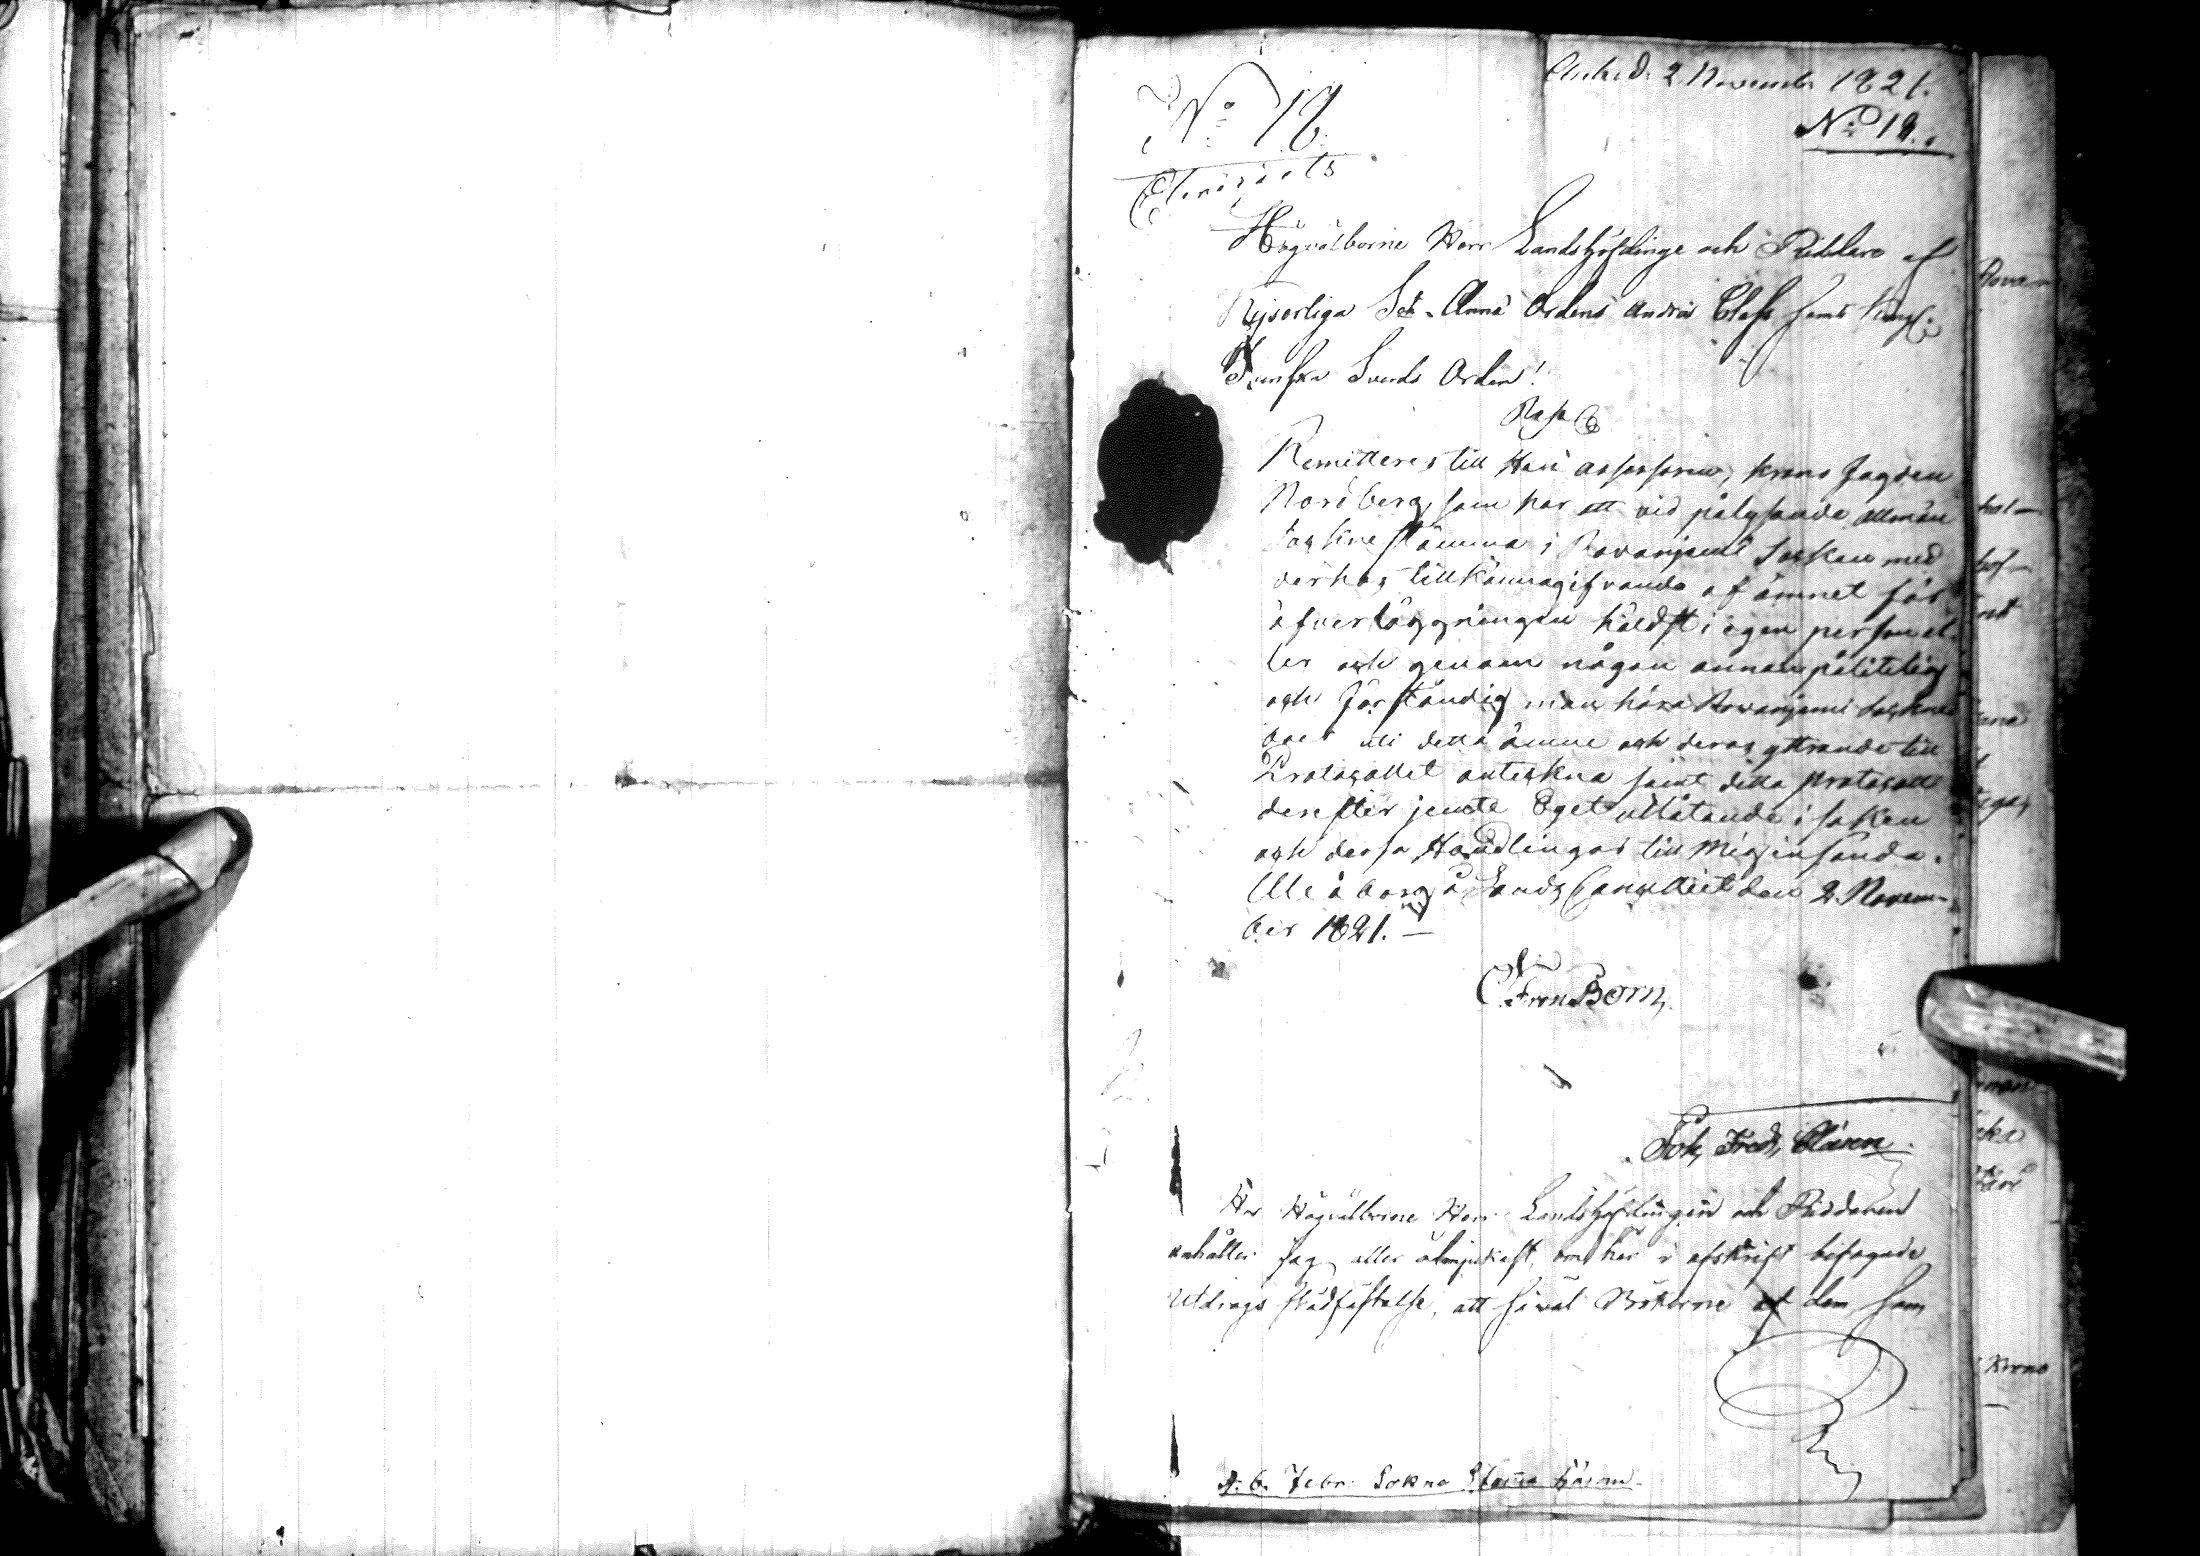 d. 2 November 1821.
No 18.
No 18.
Högvälborne Herr Landshöfdinge och Riddare af
Kejserliga Sct. Annæ Ordens Andra Class samt Kongl:
Svenska Svärds Orden!
Remitteres till Herr assessoren, krono fogden
Nordberg, som har att vid pålysande allmän
sockne stämma i Rovaniemi Socken med
derhos tillkännagifvande af ämnet för
öfverläggningen håldst i egen person el-
ler och genom någon annan pålitelig
och förståndig man höra Rovaniemi Sockne
boer uti detta ämne och deras yttrande till
Protocollet anteckna samt detta protocoll
derefter jemte Eget utlåtande i saken
och dessa Handlingar till Mig insända.
Uleåborg å Lands Cancelliet den 2 Novem-
ber 1821. —
C. F. von Born,
Joh, Fredr,
Hos Högvälborne Herr Landshöfdingen och Riddaren
anhåller Jag aller ödmjukast, om här i afskrift bifogade
Utdrags stadfästelse, att såväl Bröderne af dem som
d. 6. Febr. Sokne Stäma
Rova-
Krono